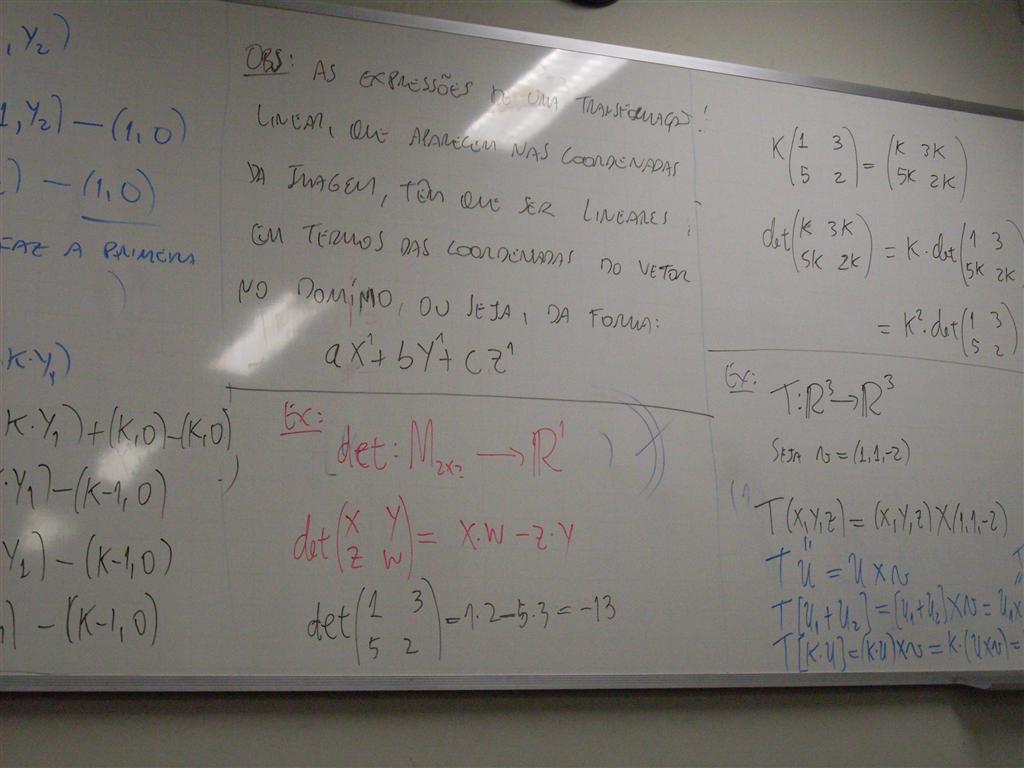 ,Y₂)
1,Y₂) – (1,0)
) – (1,0)
FAZ A PRIMEIRA
K·Y₁)
K·Y₁)+(K,0)–(K,0)
·Y₁)–(K-1,0)
Y₁) – (K-1,0)
) – (K-1,0)
OBS: AS EXPRESSÕES DE UMA TRANSFORMAÇÃO
LINEAR, QUE APARECEM NAS COORDENADAS
DA IMAGEM, TÊM QUE SER LINEARES
EM TERMOS DAS COORDENADAS DO VETOR
NO DOMÍNIO, OU SEJA, DA FORMA:
aX¹+bY¹+cZ¹
Ex:
det: M₂ₓ₂ → ℝ¹
det(X Y
Z W) = X·W – Z·Y
det(1 3
5 2) = 1·2–5·3 = –13
K(1 3
5 2) = (K 3K
5K 2K)
det(K 3K
5K 2K) = K·det(1 3
5K 2K
= K²·det(1 3
5 2)
Ex: T:ℝ³→ℝ³
SEJA v=(1,1,-2)
T(X,Y,Z) = (X,Y,Z)X(1,1,-2)
T u = u x v
T[u₁+u₂] = [u₁+u₂]xv = u₁x
T[K·u]=(K·u)xv=K·(uxv)=